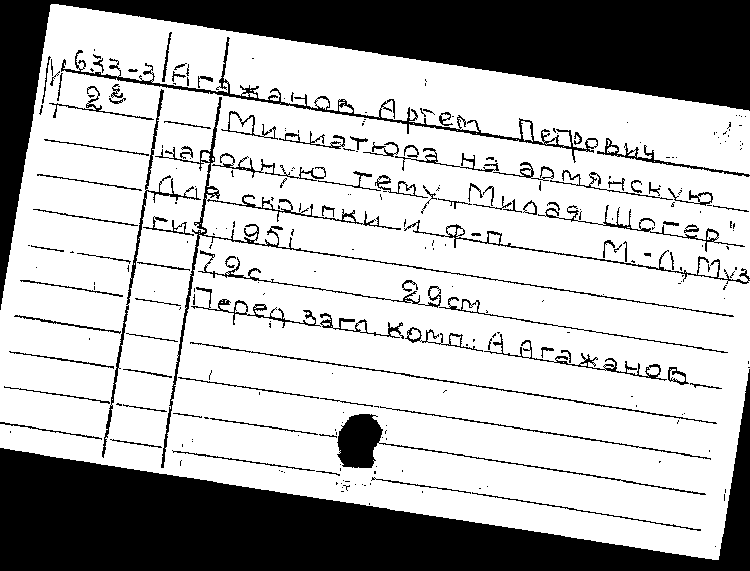 М 633-3 Агажанов, Артем Петрович
22 Миниатюра на армянскую
народную тему „Милая Шогер".
Для скрипки и ф-п. М.-Л., Муз
гиз, 1951.
7,2 с. 29 см.
Перед загл. комп.: А. Агажанов.